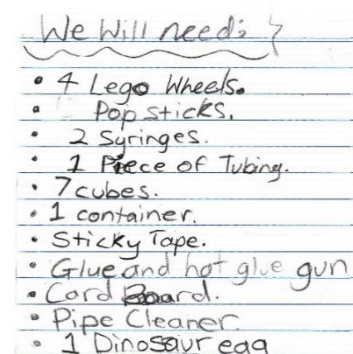 We Will need:
• 4 Lego Wheels.
• Pop sticks.
• 2 Syringes.
• 1 Piece of Tubing.
• 7 cubes.
• 1 container.
• Sticky Tape.
• Glue and hot glue gun
• Card Board.
• Pipe Cleaner.
• 1 Dinosaur egg